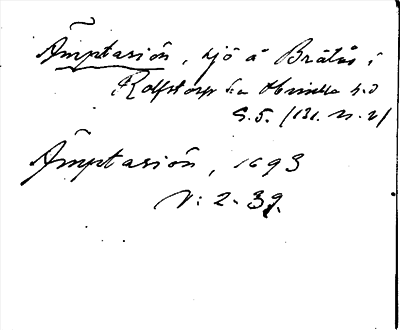 Åmptasiön, sjö å Brätås i
Rolfstorp sn Himle hd
S. 5. (131. n. 2)
Åmptasiön, 1693
N: 2. 39.